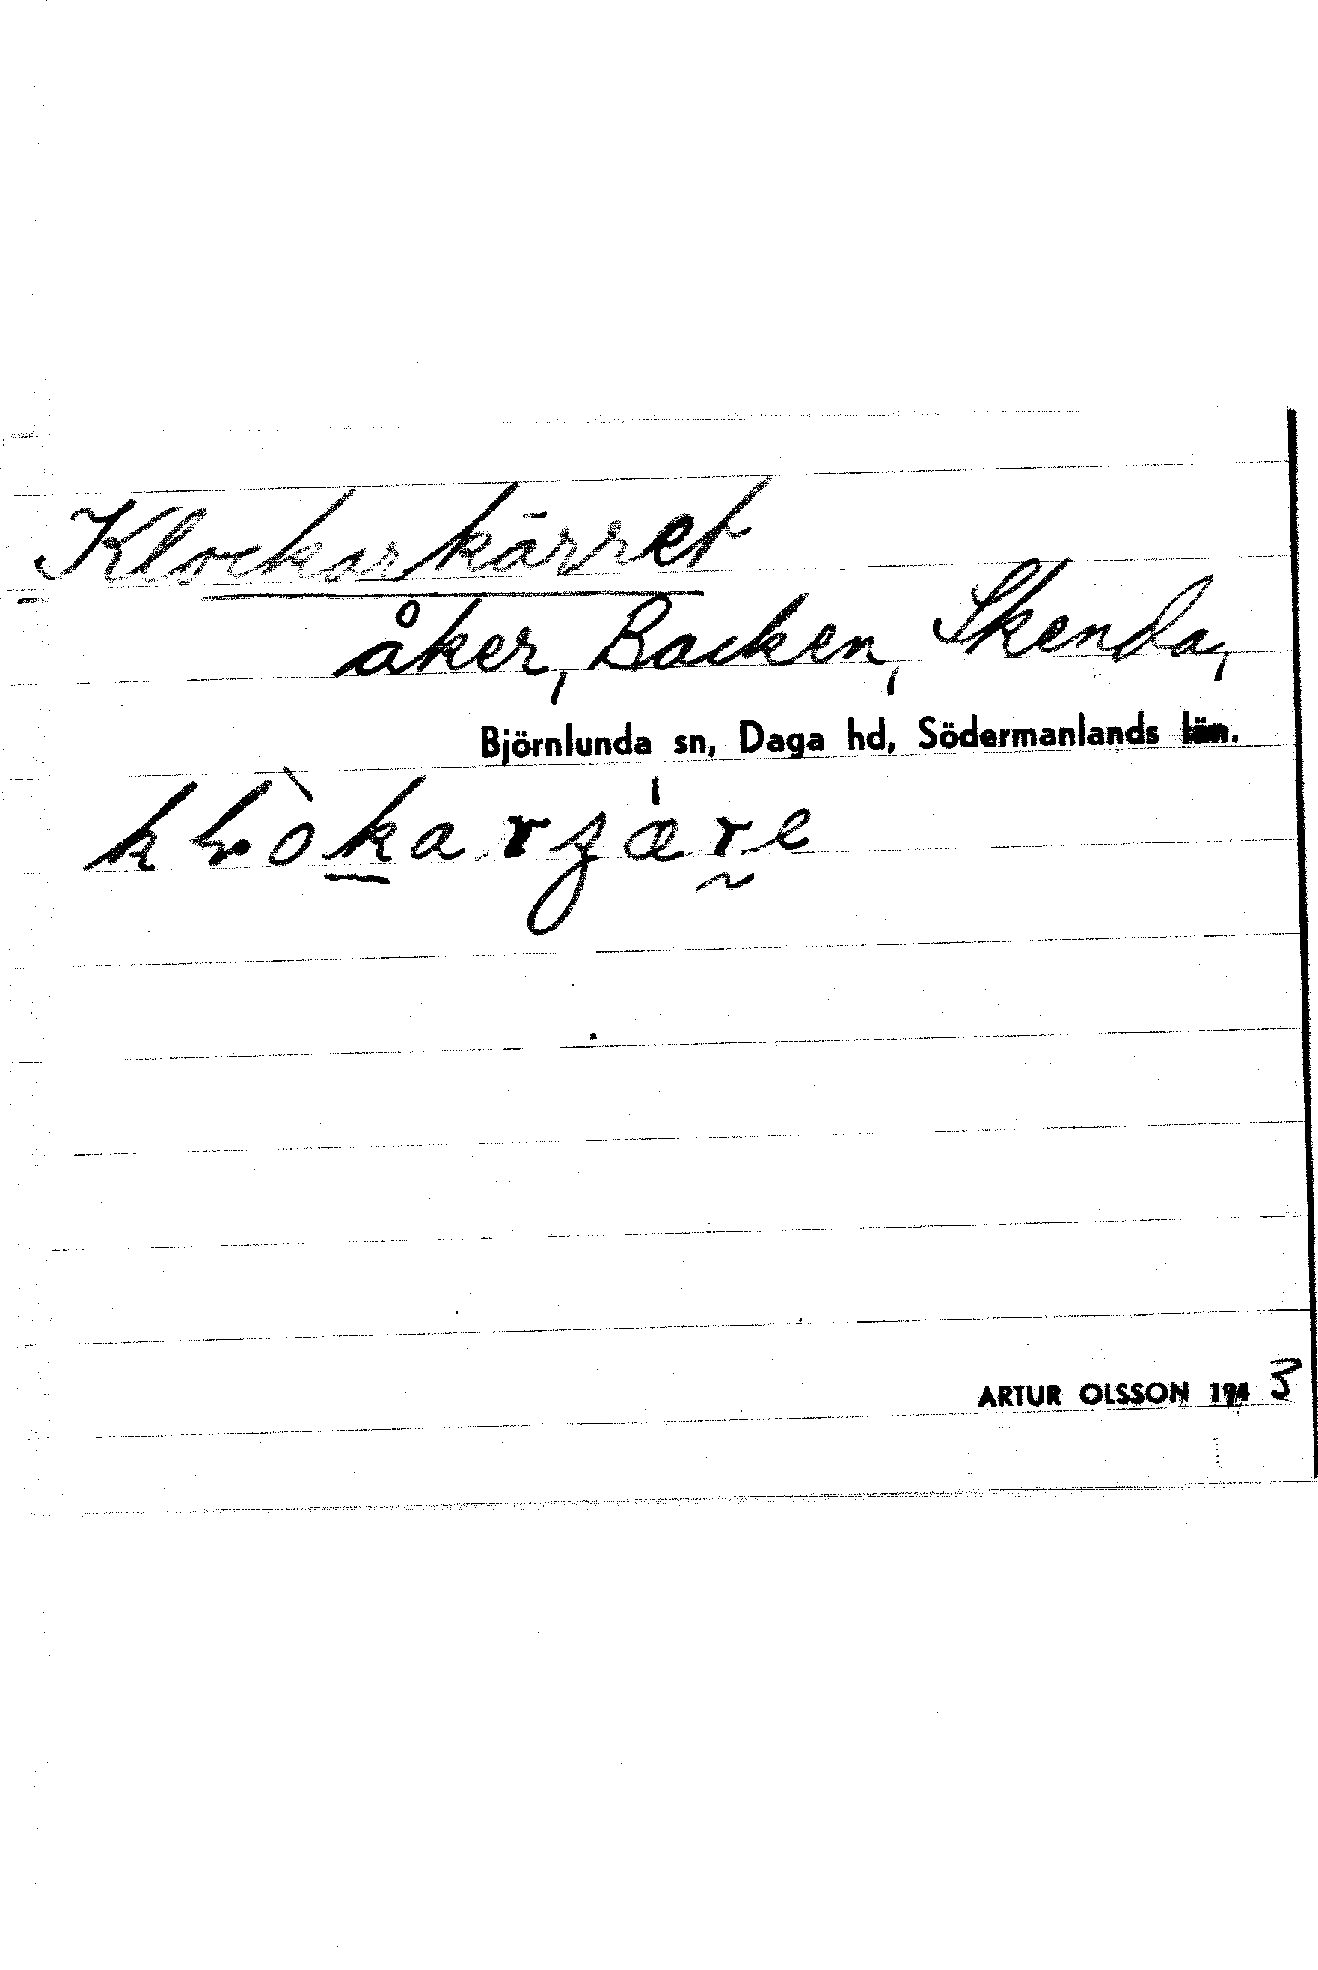 Klockarkärret
åker, Backen, Skenda,
Björnlunda sn, Daga hd, Södermanlands län.
ARTUR OLSSON 1943